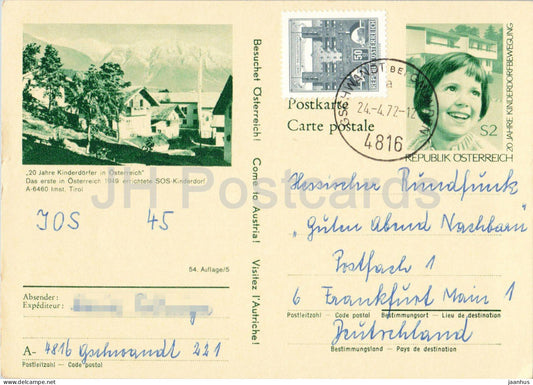 Besuchet Österreich! Come to Austria! Visitez l'Autriche!
50
REPUBLIK ÖSTERREICH
Postkarte
Carte postale
GSCHWANDT BEI
a
24.-4.72-12
4816
20 JAHRE KINDERDORFBEWEGUNG
S2
REPUBLIK ÖSTERREICH
„20 Jahre Kinderdörfer in Österreich"
Das erste in Österreich 1949 errichtete SOS-Kinderdorf
A-6460 Imst, Tirol
JH Postcards
JOS 45
54. Auflage/5
Hessischer Rundfunk
"Guten Abend Nachbarn"
Postfach 1
6 Frankfurt Main 1
Postleitzahl – Code postal Bestimmungsort – Lieu de destination
Deutschland
Bestimmungsland – Pays de destination
Absender:
Expéditeur:
A- 4816 Gschwandt 221
Postleitzahl – Code postal
jaanhus